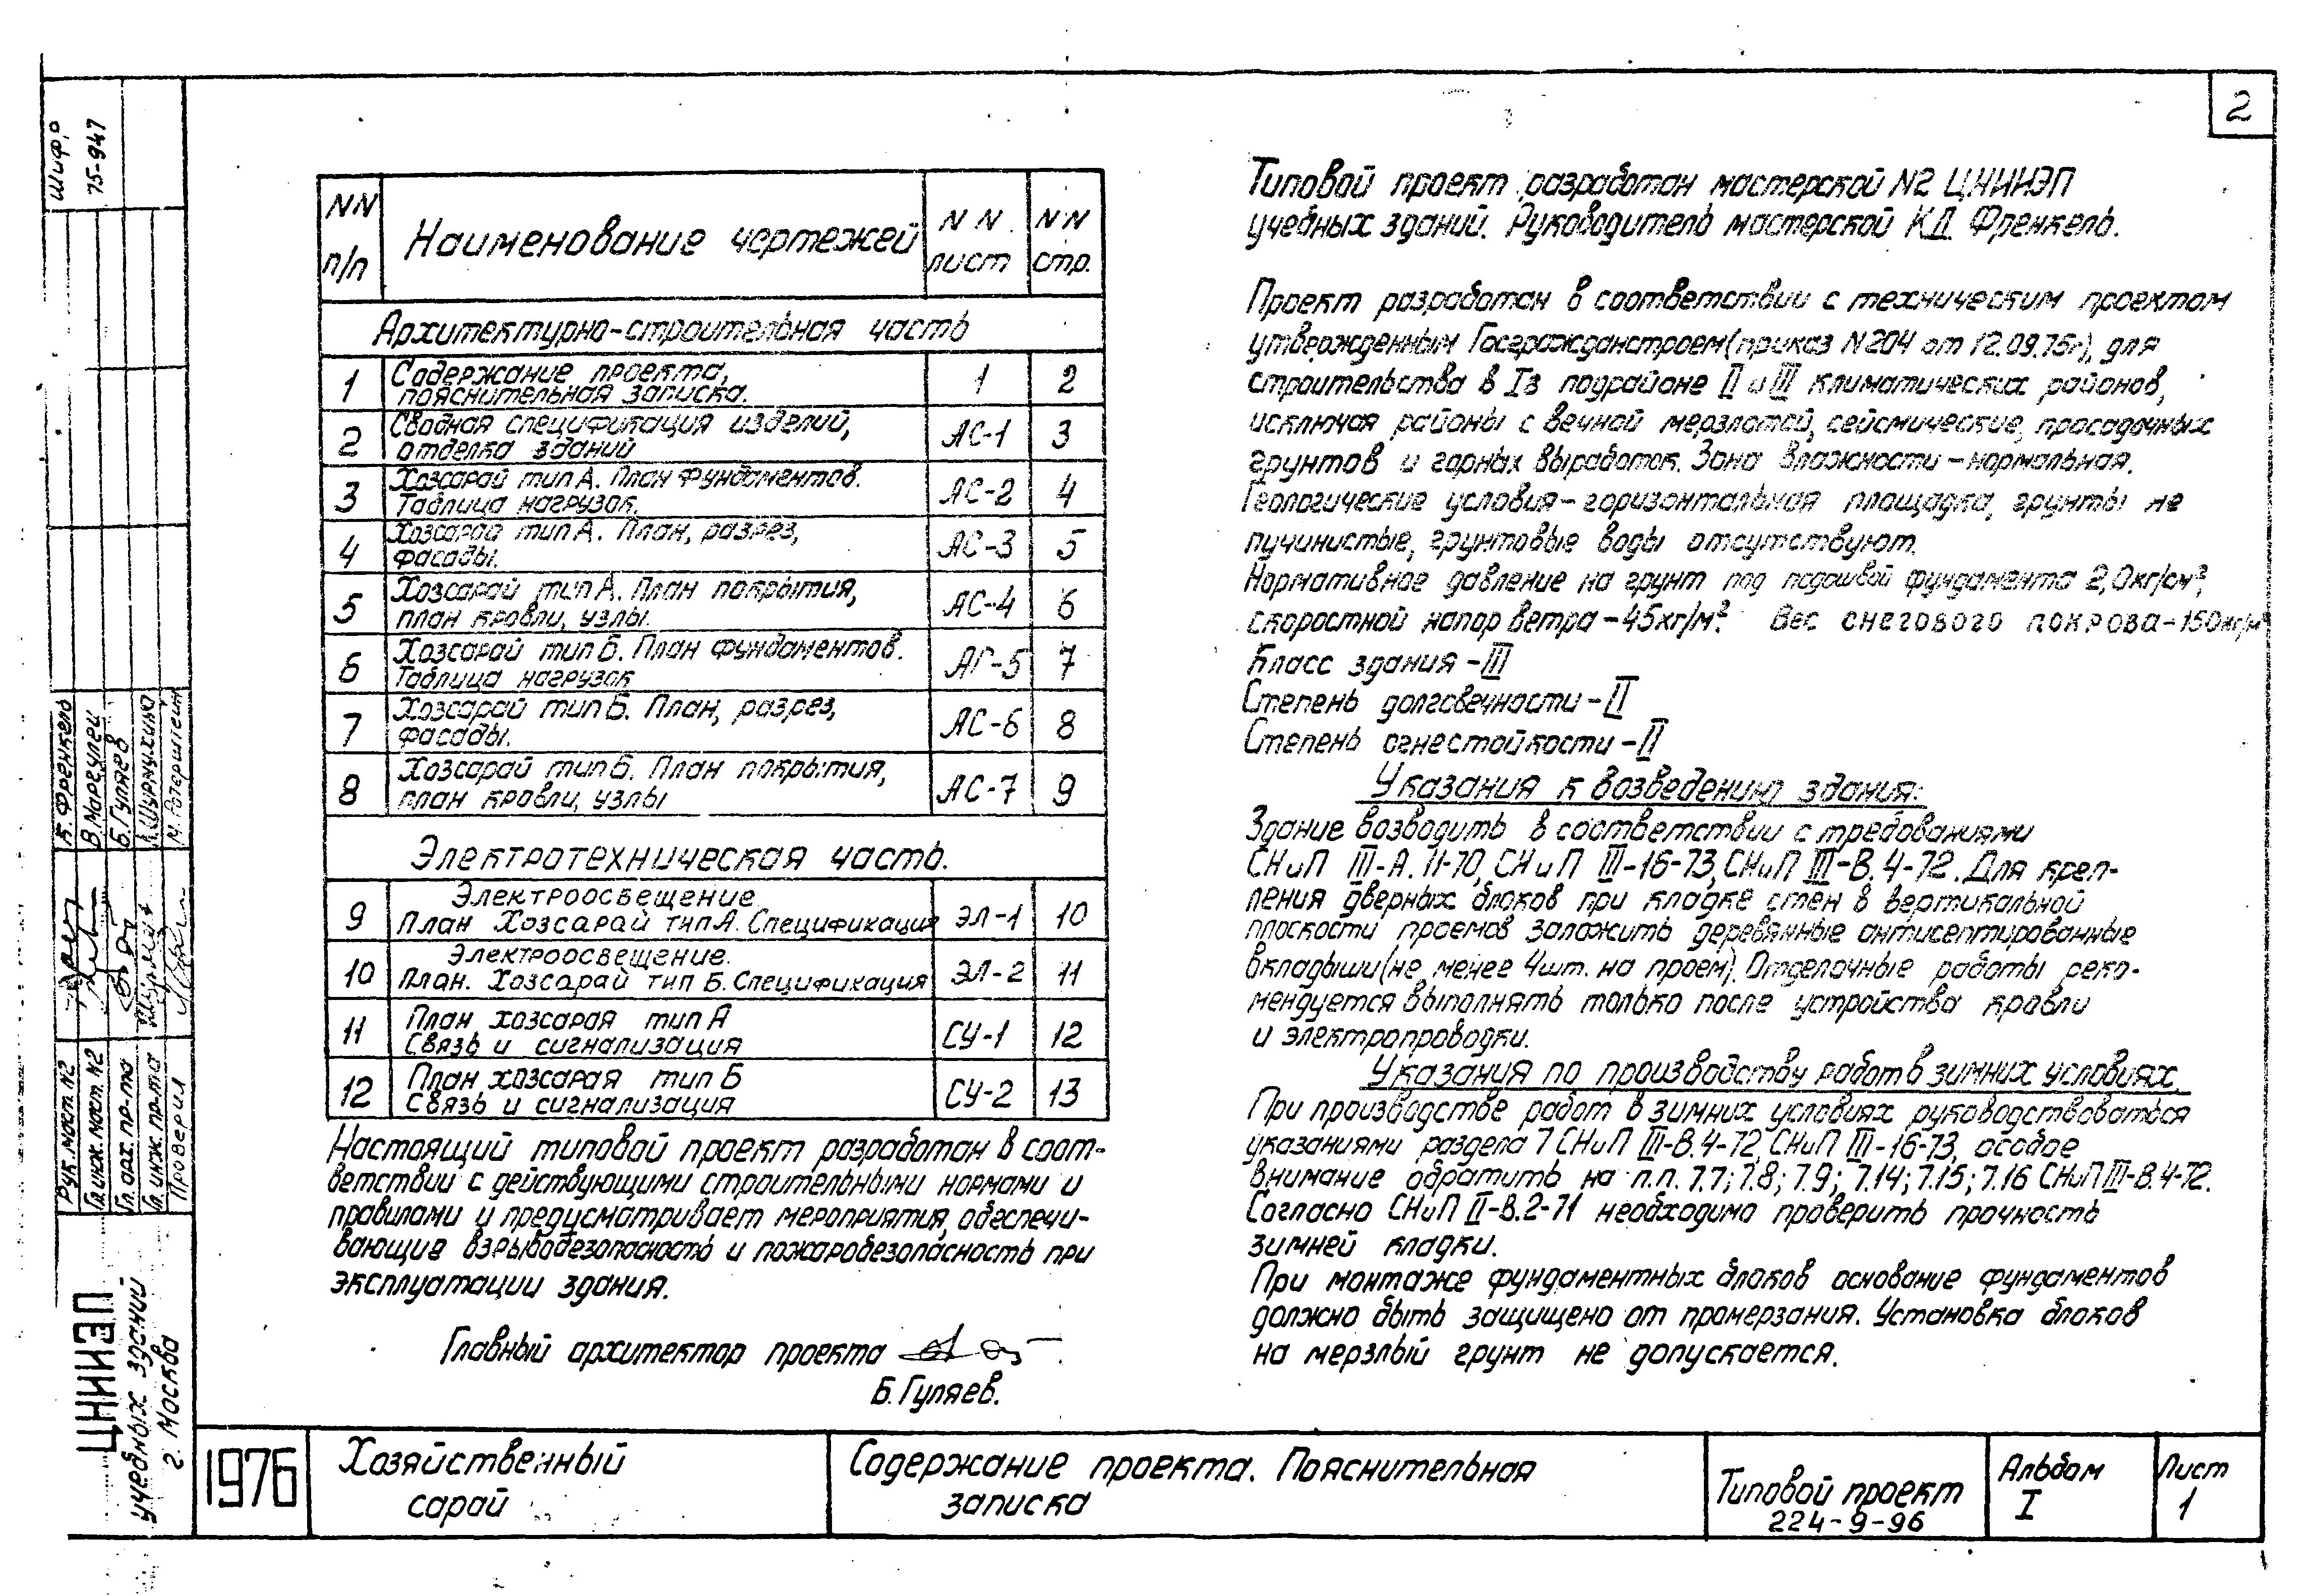 2
Шифр
75-947
NN п/п
Наименование чертежей
NN лист
NN стр.
Архитектурно-строительная часть
1 Содержание проекта, пояснительная записка. 1 2
2 Сводная спецификация изделий, отделка зданий АС-1 3
3 Хозсарай тип А. План фундаментов. Таблица нагрузок. АС-2 4
4 Хозсарай тип А. План, разрез, фасады. АС-3 5
5 Хозсарай тип А. План покрытия, план кровли, узлы. АС-4 6
6 Хозсарай тип Б. План фундаментов. Таблица нагрузок АС-5 7
7 Хозсарай тип Б. План, разрез, фасады. АС-6 8
8 Хозсарай тип Б. План покрытия, план кровли, узлы АС-7 9
Электротехническая часть.
9 Электроосвещение План Хозсарай тип А. Спецификация ЭЛ-1 10
10 Электроосвещение. План. Хозсарай тип Б. Спецификация ЭЛ-2 11
11 План хозсарая тип А Связь и сигнализация СУ-1 12
12 План хозсарая тип Б Связь и сигнализация СУ-2 13
Настоящий типовой проект разработан в соот-
ветствии с действующими строительными нормами и
правилами и предусматривает мероприятия, обеспечи-
вающие взрывобезопасность и пожаробезопасность при
эксплуатации здания.
Главный архитектор проекта
Б. Гуляев.
Типовой проект разработан мастерской N2 ЦНИИЭП
учебных зданий. Руководитель мастерской К.Д. Френкель.
Проект разработан в соответствии с техническим проектом
утвержденным Госгражданстроем (приказ N204 от 12.09.75г), для
строительства в Iв подрайоне II и III климатических районов,
исключая районы с вечной мерзлотой, сейсмические, просадочных
грунтов и горных выработок. Зона влажности - нормальная.
Геологические условия - горизонтальная площадка, грунты не
пучинистые, грунтовые воды отсутствуют.
Нормативное давление на грунт под подошвой фундамента 2,0кг/см²,
скоростной напор ветра - 45кг/м². Вес снегового покрова - 150кг/м²
Класс здания - III
Степень долговечности - II
Степень огнестойкости - II
Указания к возведению здания:
Здание возводить в соответствии с требованиями
СНиП III-А. 11-70, СНиП III-16-73, СНиП III-В. 4-72. Для креп-
ления дверных блоков при кладке стен в вертикальной
плоскости проемов заложить деревянные антисептированные
вкладыши (не менее 4шт. на проем). Отделочные работы реко-
мендуется выполнять только после устройства кровли
и электропроводки.
Указания по производству работ в зимних условиях.
При производстве работ в зимних условиях руководствоваться
указаниями раздела 7 СНиП III-В. 4-72, СНиП III-16-73, особое
внимание обратить на п.п. 7.7; 7.8; 7.9; 7.14; 7.15; 7.16 СНиП III-В. 4-72.
Согласно СНиП II-В.2-71 необходимо проверить прочность
зимней кладки.
При монтаже фундаментных блоков основание фундаментов
должно быть защищено от промерзания. Установка блоков
на мерзлый грунт не допускается.
Рук. маст. N2 К. Френкель
Гл. инж. маст. N2 В. Маргулец
Гл. арх. пр-та Б. Гуляев
Гл. инж. пр-та
Проверил
ЦНИИЭП
учебных зданий
г. Москва
1976
Хозяйственный
сарай
Содержание проекта. Пояснительная
записка
Типовой проект
224-9-96
Альбом
I
Лист
1